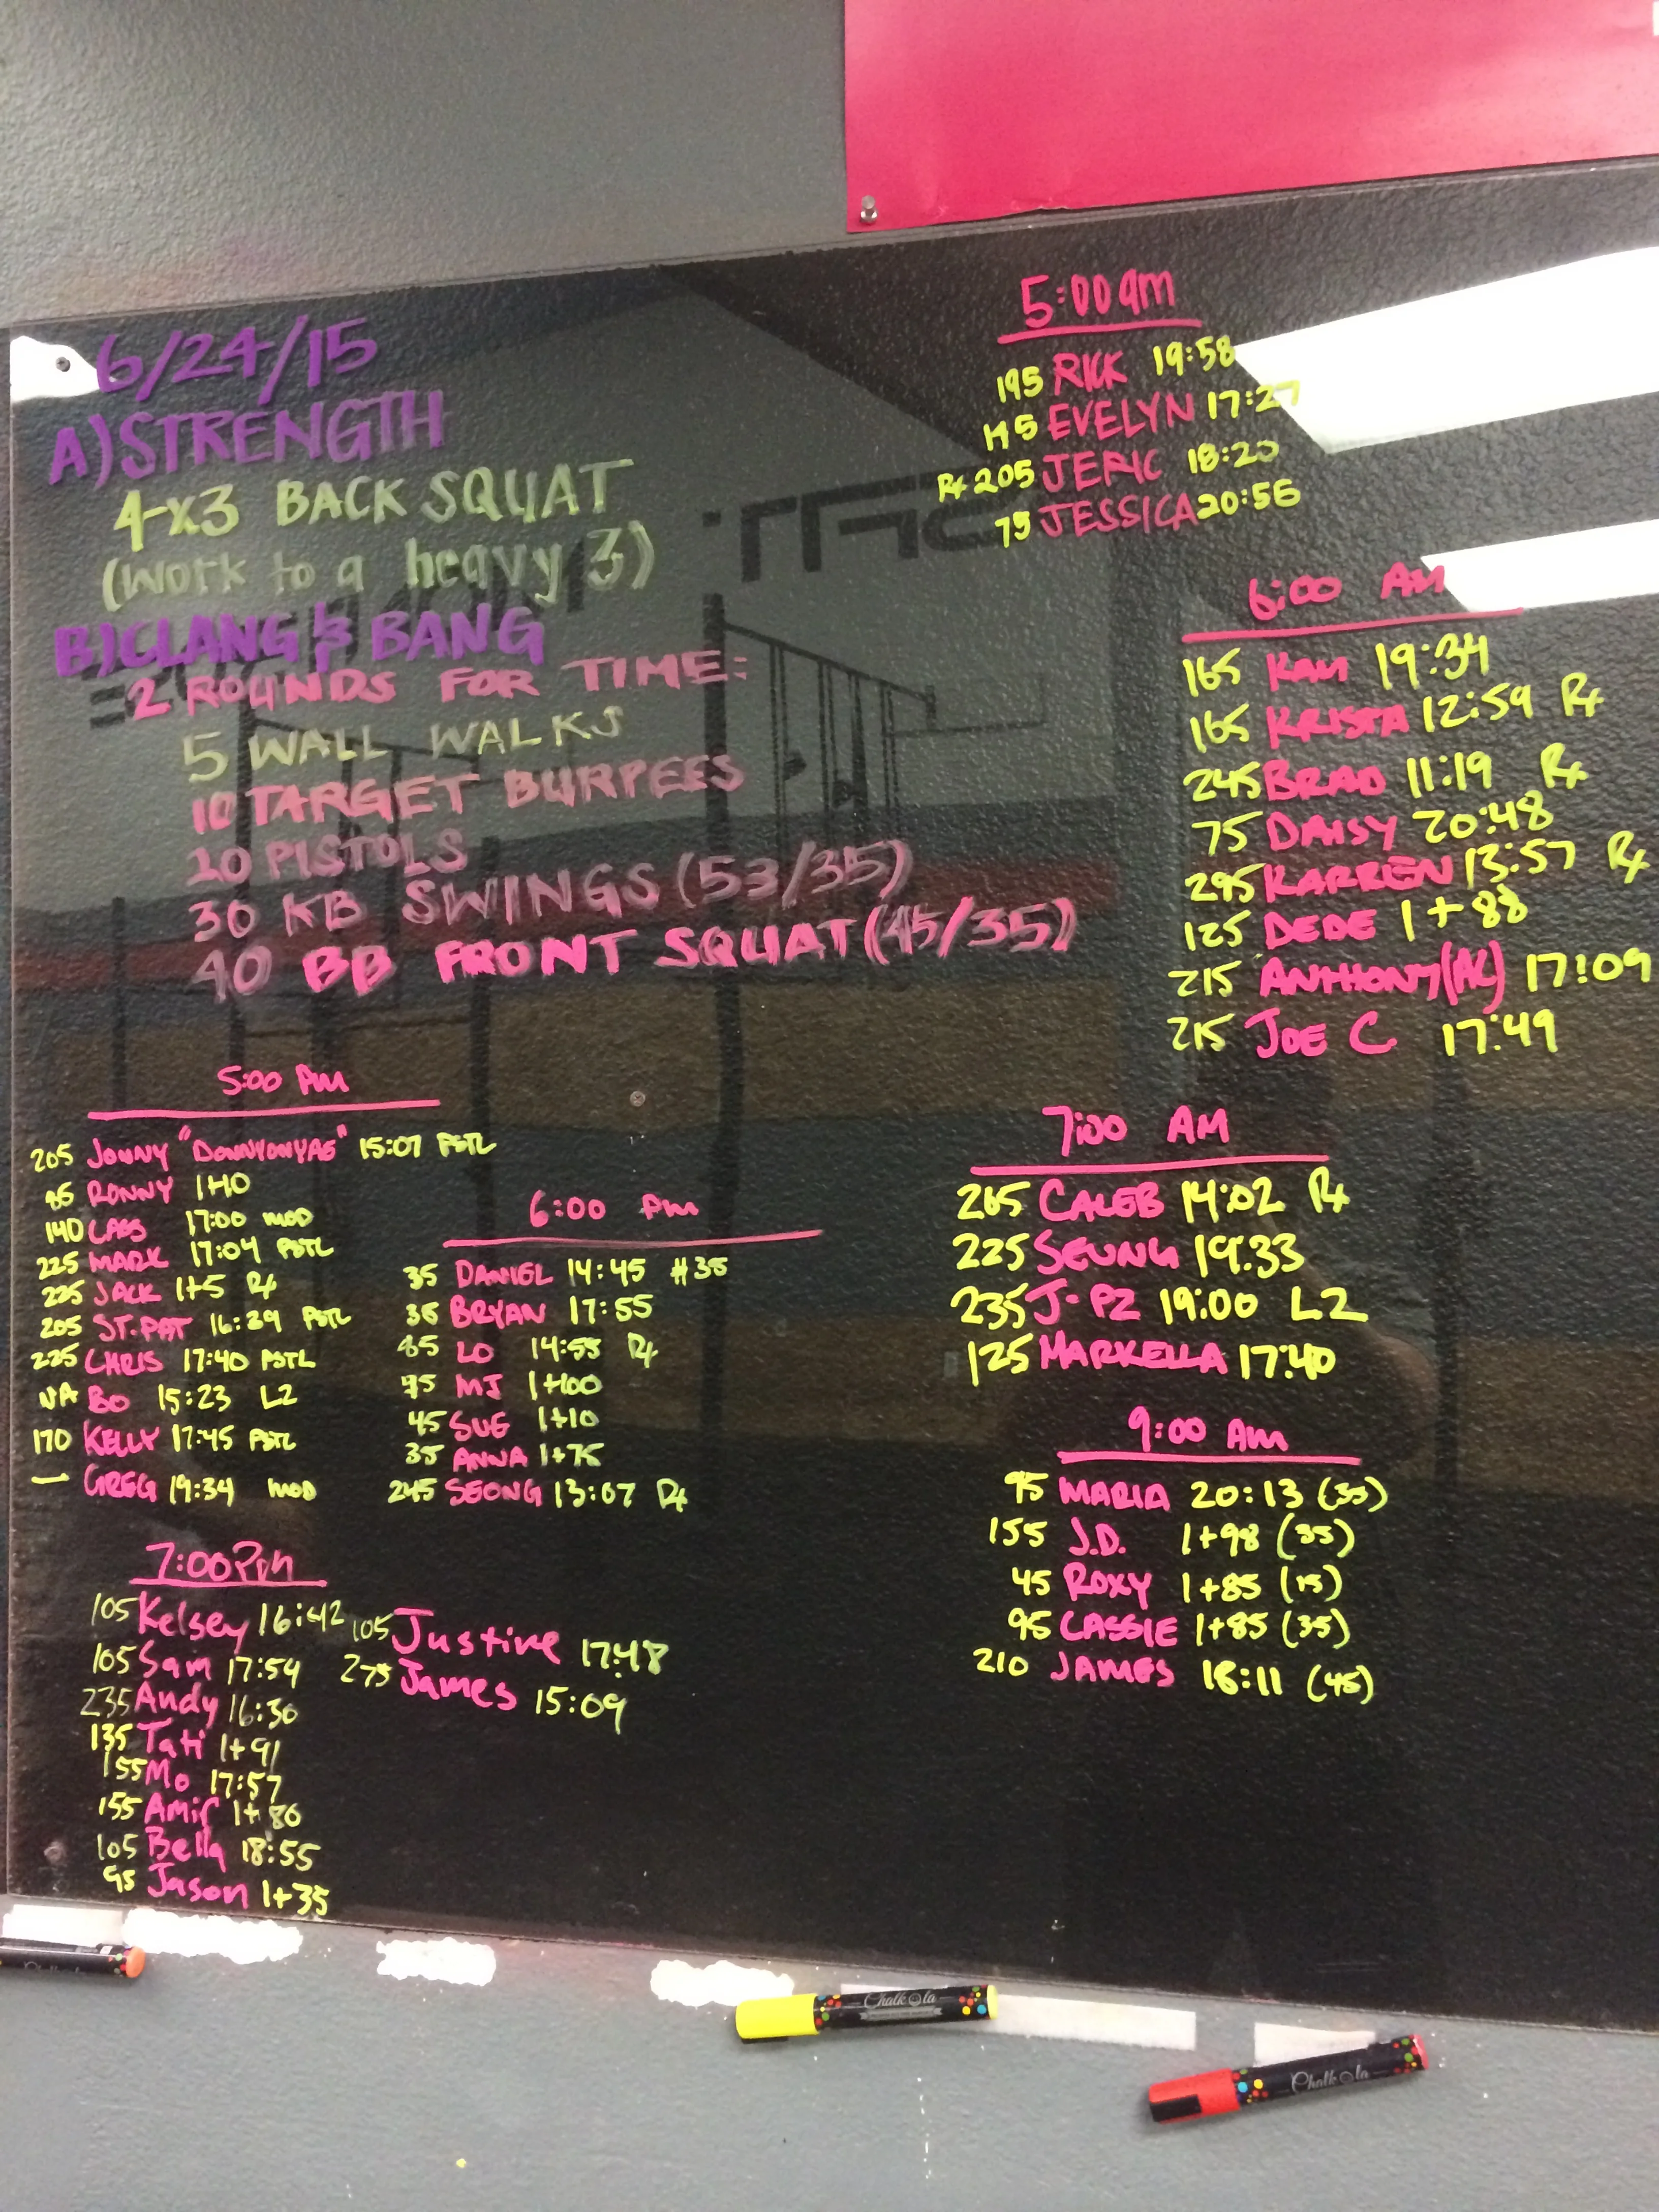 6/24/15
A) STRENGTH
4x3 BACK SQUAT
(Work to a heavy 3)
B) CLANG & BANG
2 ROUNDS FOR TIME:
5 WALL WALKS
10 TARGET BURPEES
20 PISTOLS
30 KB SWINGS (53/35)
40 BB FRONT SQUAT (45/35)
5:00am
195 RICK 19:58
EVELYN 17:27
Rx 205 JERIC 18:20
75 JESSICA 20:56
6:00 AM
165 19:34
165 KRISTA 12:59 Rx
245 BRAD 11:19 Rx
75 DAISY 20:48
295 KARREN 13:57 Rx
125 DEDE 1+88
215 ANTHONY (AC) 17:09
215 JOE C 17:49
5:00 AM
205 JONNY 15:07 PSTL
RONNY 1+10
140 CASS 17:00 MOD
225 MARK 17:04 PSTL
225 JACK 1+5 Rx
205 ST. PAT 16:39 PSTL
225 CHRIS 17:40 PSTL
NA BO 15:23 L2
170 KELLY 17:45 PSTL
— GREG 19:34 MOD
6:00 PM
35 DANIEL 14:45 #35
35 BRYAN 17:55
LO 14:55 Rx
75 MJ 1+100
45 SUE 1+10
35 ANNA 1+75
245 SEONG 13:07 Rx
7:00 AM
265 CALEB 14:02 Rx
225 SEUNG 19:33
235 J-PZ 19:00 L2
125 MARKELLA 17:40
9:00 AM
95 MARIA 20:13 (35)
155 J.D. 1+98 (35)
45 ROXY 1+85 (15)
95 CASSIE 1+85 (35)
210 JAMES 18:11 (45)
7:00Pm
105 Kelsey 16:42
105 Sam 17:54
235 Andy 16:30
135 Tati 1+91
155 Mo 17:57
155 Amir 1+80
105 Bella 18:55
95 Jason 1+35
105 Justine 17:48
275 James 15:09
Chalkola
Chalkola